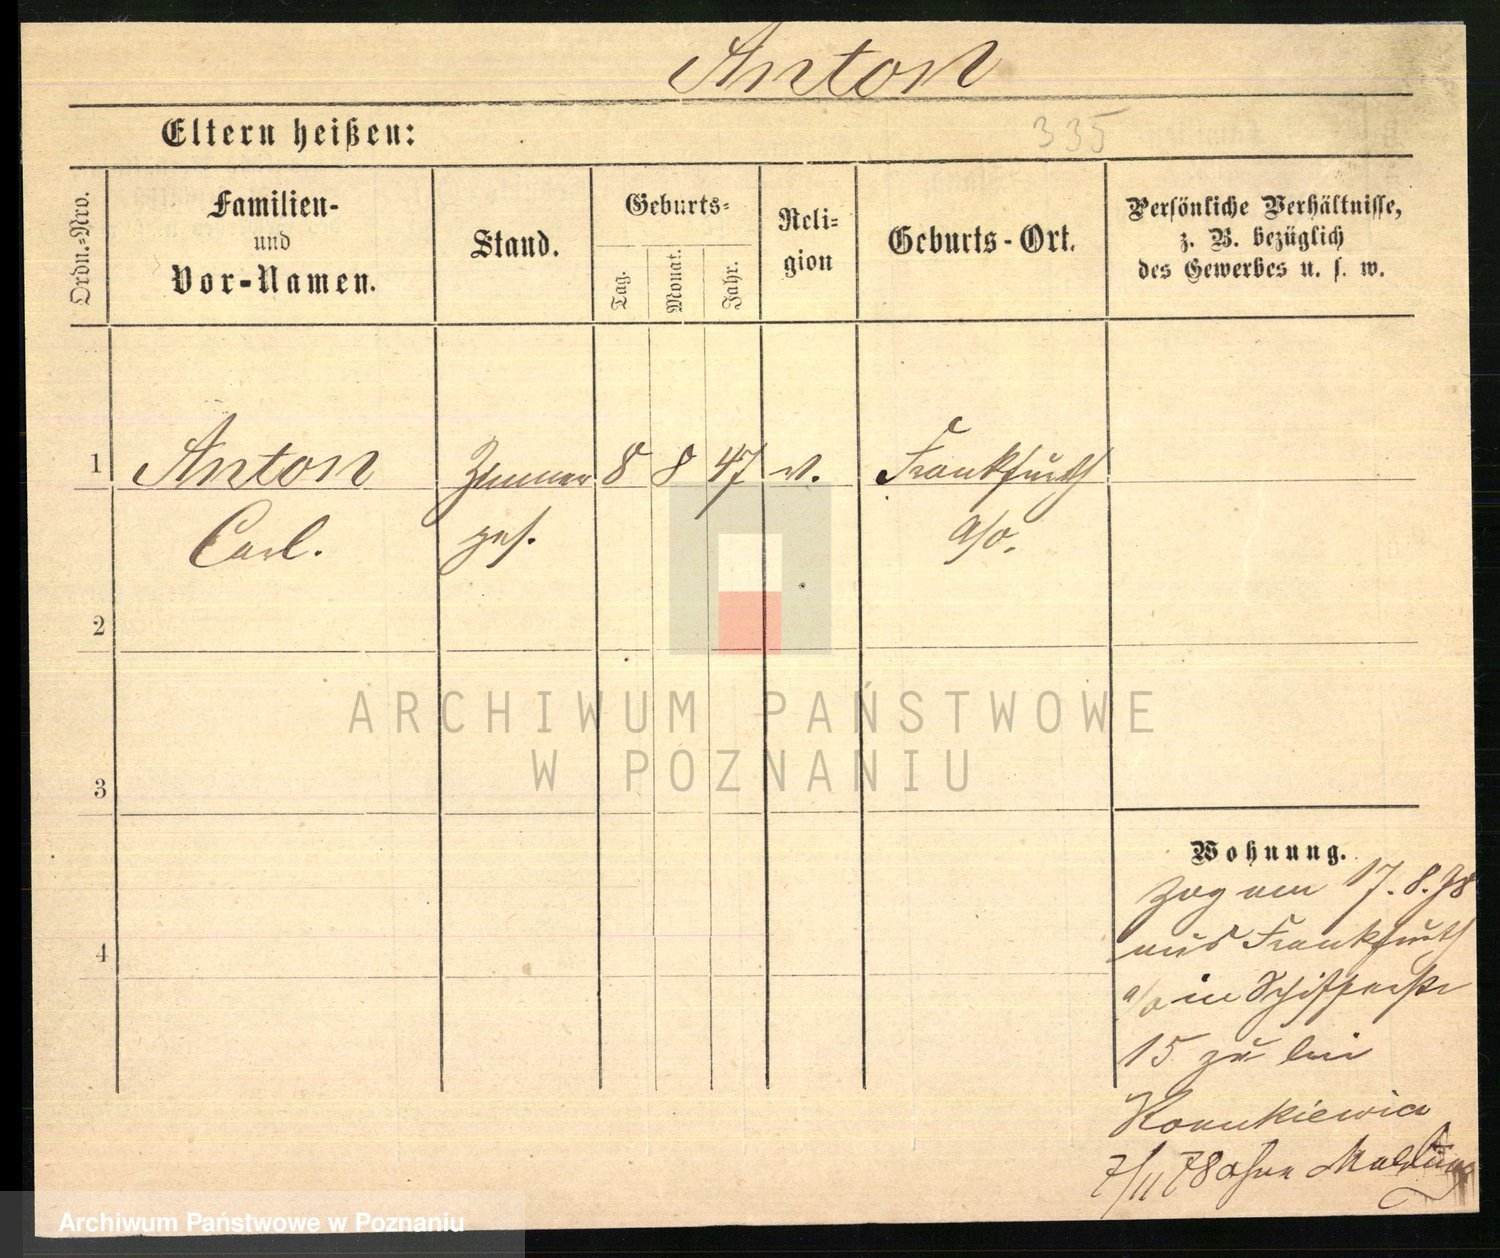 Anton
Eltern heißen:
335
Ordn.-Nro.
Familien-
und
Vor-Namen.
Stand.
Geburts-
Tag.
Monat.
Jahr.
Reli-
gion
Geburts-Ort.
Persönliche Verhältnisse,
z. B. bezüglich
des Gewerbes u. s. w.
1
Anton
Carl.
Zimmer
ges.
8
8
47
ev.
Frankfurth
a/o.
2
3
4
ARCHIWUM PAŃSTWOWE
W POZNANIU
Wohnung.
Zog am 17.8.78
aus Frankfurth
a/o in Schifferstr
15 zu bei
7/11 78 ohne Meldung
Archiwum Państwowe w Poznaniu